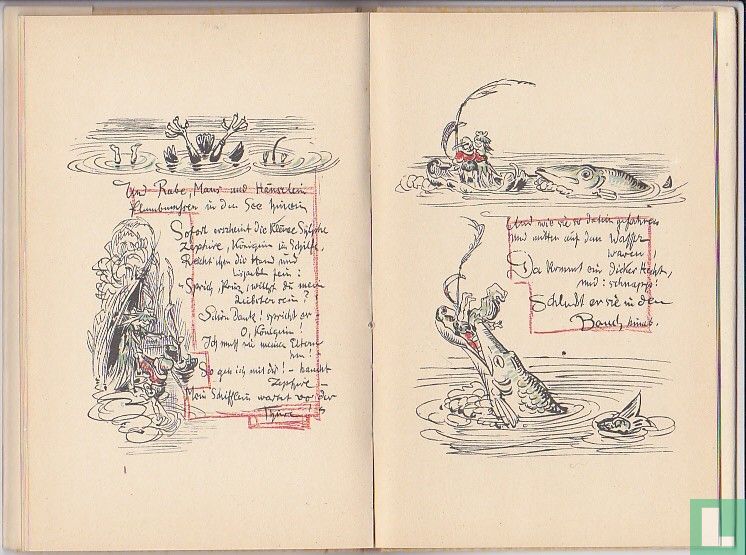 Und Rabe, Maus und Hänselein
Plumbumsen in den See hinein
Sofort erscheint die kleine Sylphe
Zephire, Königin im Schilfe,
Reicht ihm die Hand und
lispelt fein:
"Sprich, Prinz, willst du mein
Liebster sein?
Schön Dank! spricht er –
O, Königin!
Ich muß zu meinen Eltern
hin!
So geh ich mit dir! – haucht
Zephire –
Mein Schifflein wartet vor der
Türe!
Und wie sie so dahin gefahren
und mitten auf dem Wasser
waren,
Da kommt ein dicker Hecht,
und: schnapps!
Schluckt er sie in den
Bauch